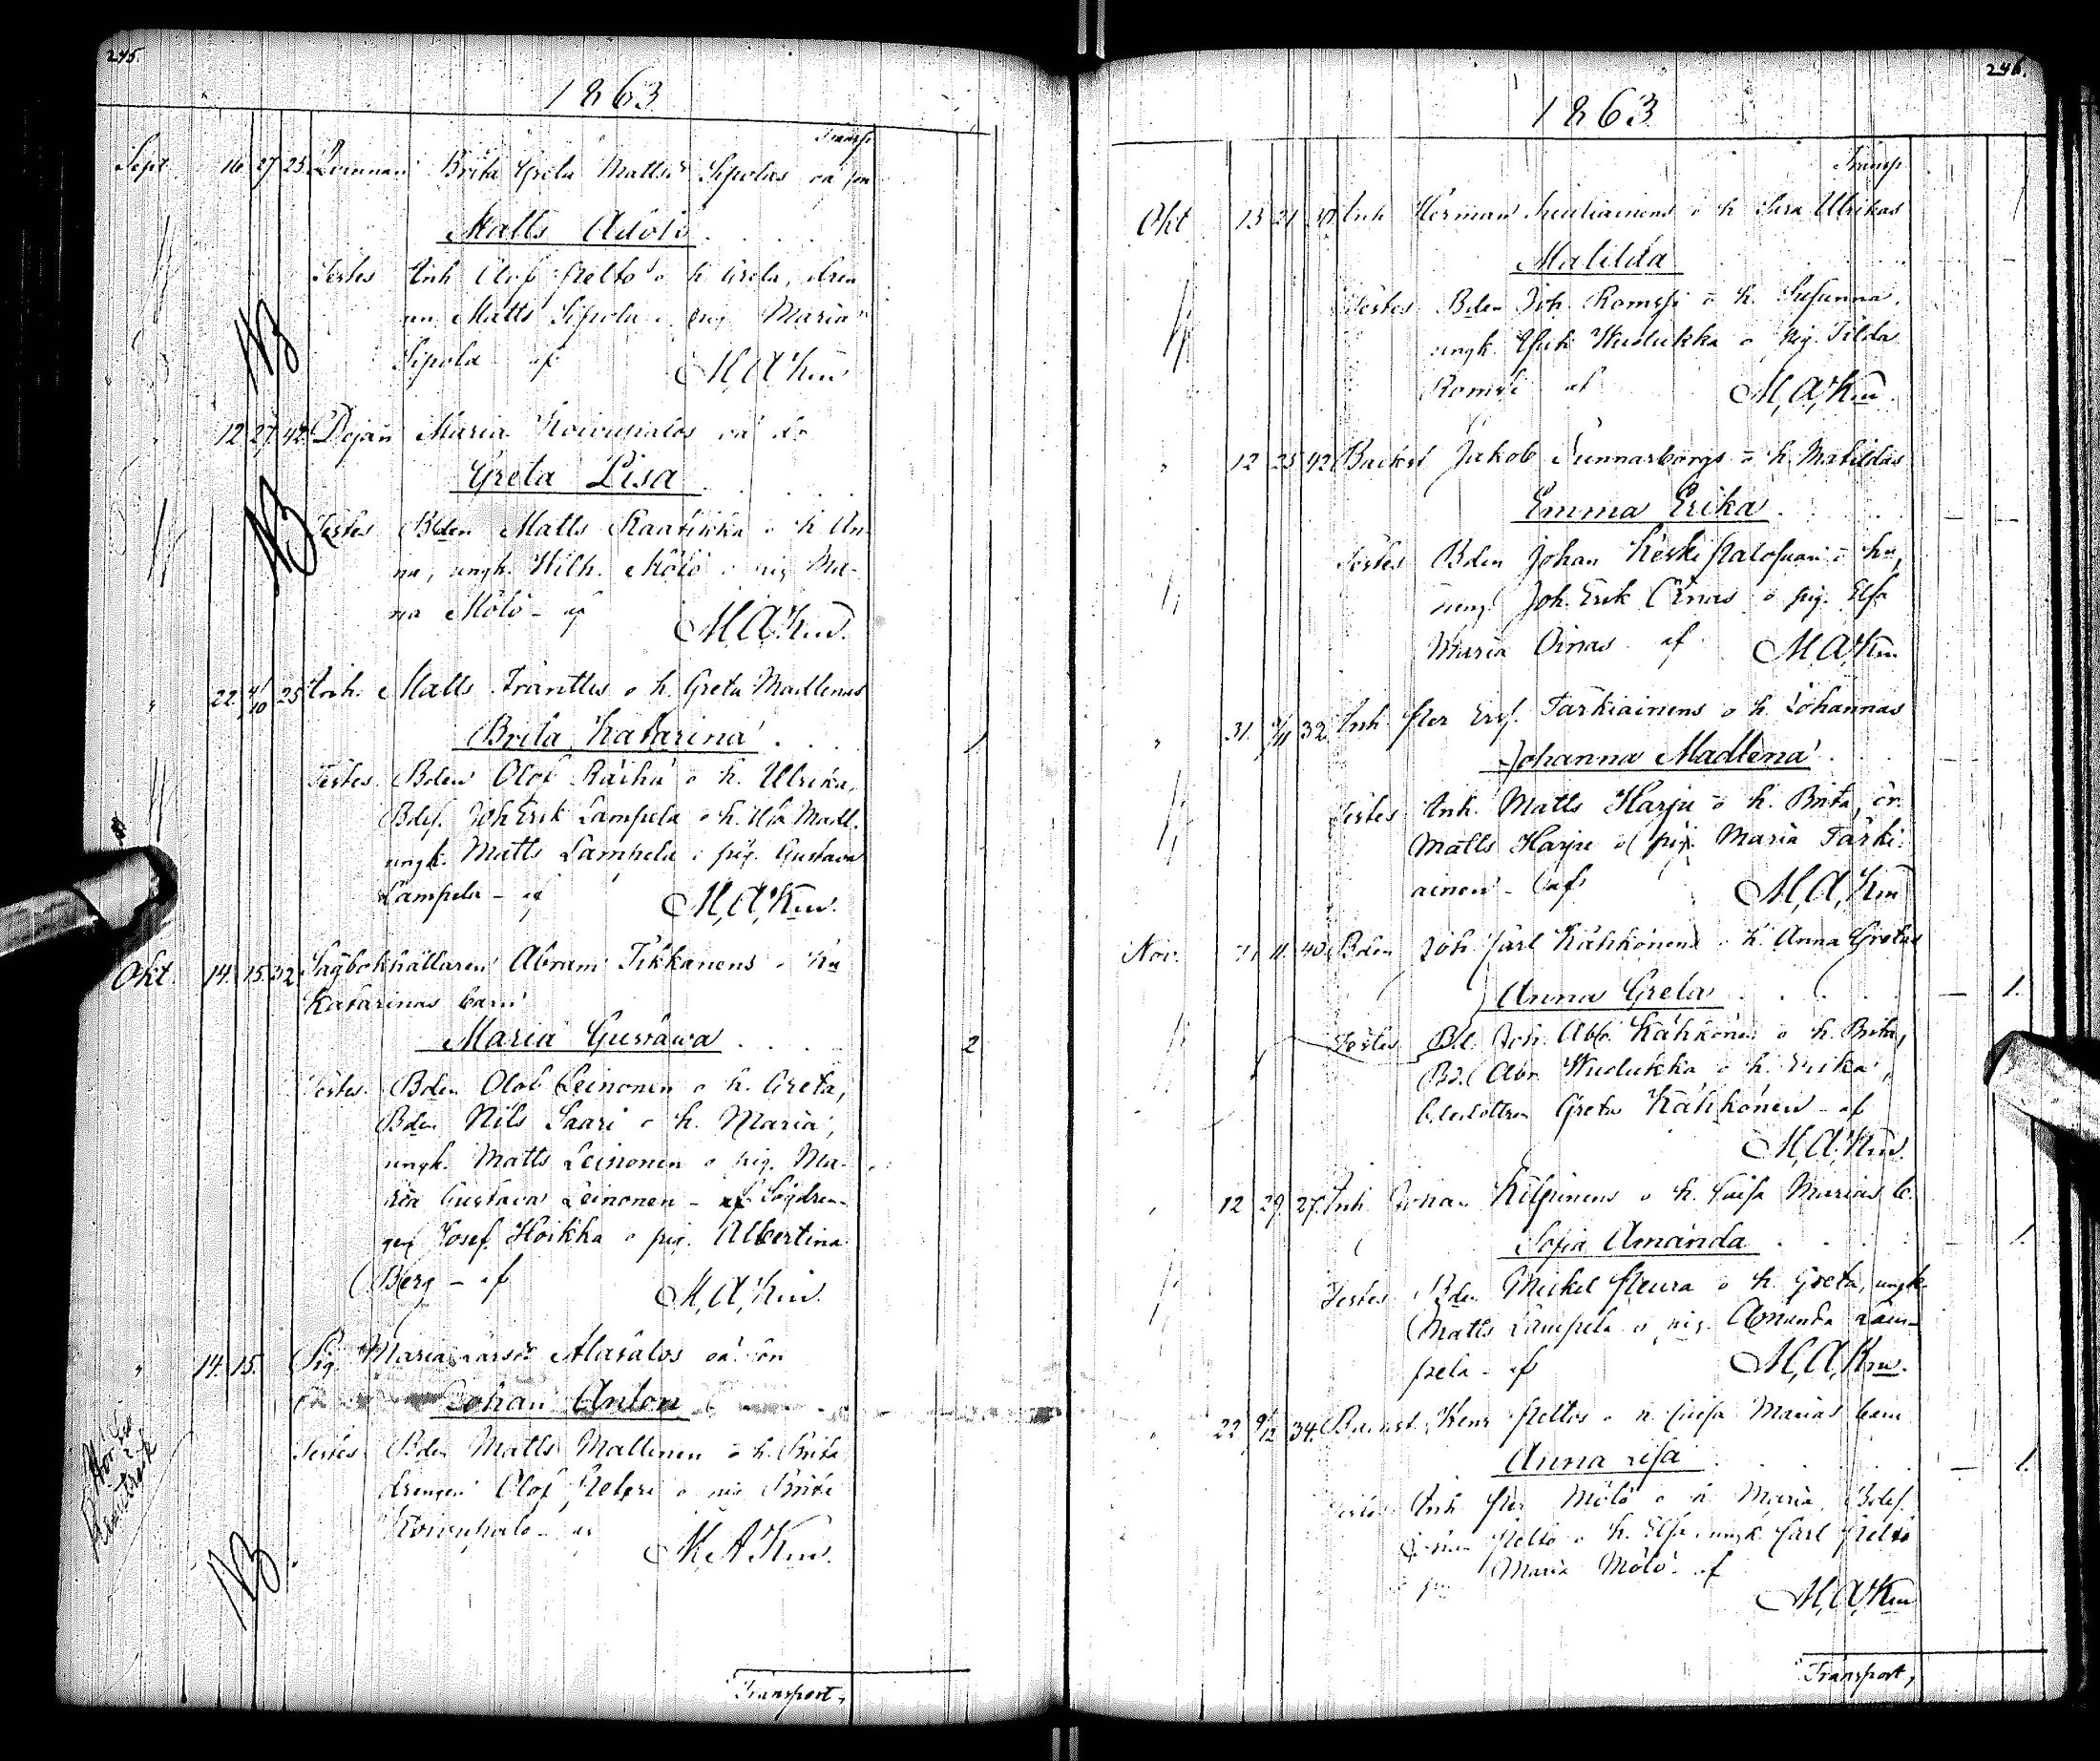 245.
1863
Transp
Sept. 16 27 25 Qvinnan Brita Greta Mattsdr Sipolas oä son
Matts Adolf
Testes Inh Olof Pelto o h. Greta, dren
Matts Sipola o pig Maria
Sipola af M,A,Km
NB
" 12 27 42 Dejan Maria Koivupalos oä
Greta Lisa
NB
Testes Bden Matts Kaarikka o h An
na, ungk. Wilh. Mölö o pig Ma-
ria Mölö - af M,A,Km.
" 22 4/10 25 Inh. Matts Frantties o h. Greta Madlenas
Brita Katarina
Testes Bden Olof Räihä o h. Ulrika,
Bdes. Joh Erik Lampela o h. Ulla Madl.
ungk. Matts Lampela o pig. Gustava
Lampela - af M,A,Km.
Okt. 14. 15. 32. Sågbokhållaren Abram Tikkanens o hu
Katarinas barn
Maria Gustawa 2
Testes Bden Olof Leinonen o h. Greta,
Bden Nils Saari o h. Maria,
ungk. Matts Leinonen o pig. Ma-
ria Gustava Leinonen - af Sågdren-
gen Josef Hoikka o pig. Albertina
Berg - af M,A,Km.
" 14. 15. Pig. Maria Larsdr Alatalos oä son
Johan Anton
Testes Bden Matts Mattinen o h. Brita
drengen Olof o pig Brita
Koivupalo - af M,A,Km.
NB.
Transport,
246.
1863
Transp
Okt 13 21 Inh Herman o h Sara Ulrikas
Matilda
Testes Bden Joh. Romsi o h. Susanna,
ungk. Wuolukka o pig. Tilda
Romsi af M,A,Km.
" 12 25 42 Backst Jakob Sunnarborgs o h. Matildas
Emma Erika
Testes Bden Johan Keski o hu,
ung. Joh. Erik Oinas o pig. Elsa
Maria Oinas af M,A,Km
" 31. 32. Inh Per Ers. Tärkiainens o h. Johannas
Johanna Madlena
Testes Inh. Matts Harju o h. Brita, dr.
Matts Harju o pig. Maria Tärki-
ainen - af M,A,Km
Nov. 11. 40. Bden Joh. Carl Kähkönens o h. Anna Gretas
Anna Greta — 1.
Testes Bd. Joh. Abr. Kähkönen o h. Brita,
Bd. Abr Wuolukka o h. Erika,
Greta Kähkönen - af
M,A,Km.
" 12 29. 27. Inh Johan Kilpinens o h. Caisa Marias b.
Sofia Amanda 1.
Testes Bden Mickel Peura o h. Greta, ungk
Matts Lampela o pig. Amanda Lam-
pela - af M,A,Km.
" 22 9/12 34. Backst. Henr Peltos o h Caisa Marias barn
Anna Lisa — 1.
Testes Inh Per Mölö o h Maria, Bdes.
Johan Pelto o h. Elsa, ungk Carl Pelto
o pig Maria Mölö af
M,A,Km
Transport,